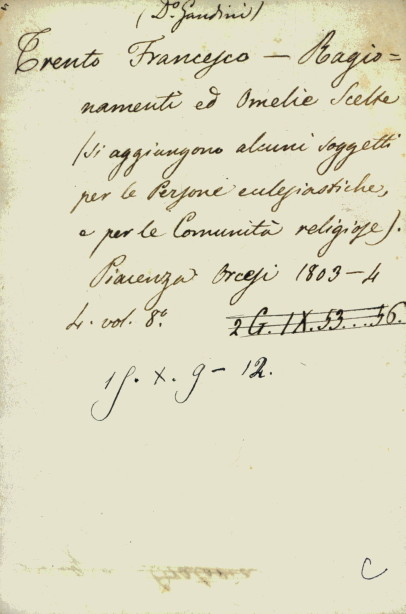 (Do. Gandini)
Trento Francesco — Ragio=
namenti ed Omelie Scelte
(si aggiungono alcuni soggetti
per le Persone eclesiastiche,
e per le Comunità religiose).
Piacenza Orcesi 1803-4
4. vol. 8o. 2 G. IX. 53...56.
15. X. 9 - 12.
C